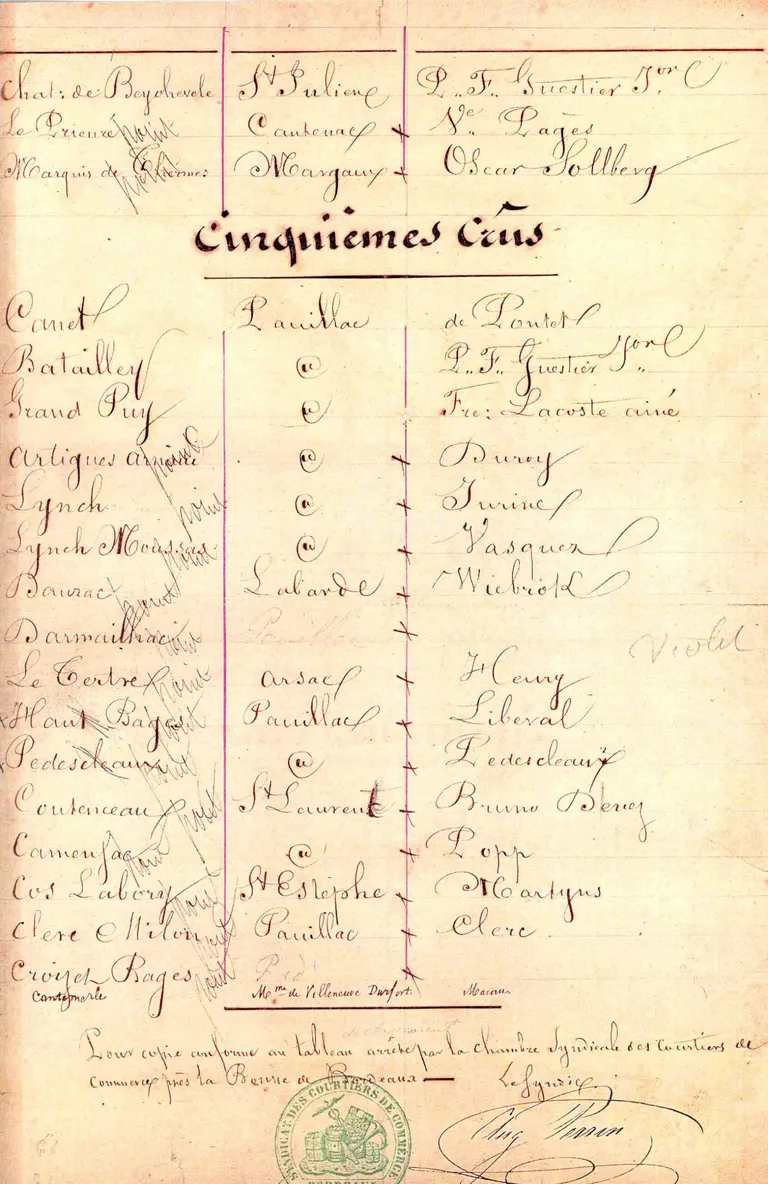 Chat: de Beychevele St Julien P.. F.. Guestier Jor
Le Prieuré point Cantenac x Ve. Pages
Marquis de Thermes point Margaux x Oscar Sollberg
Cinquièmes Crûs
Canet Pauillac de Pontet
Batailley @ P.. F.. Guestier Jor
Grand Puy @ Fre: Lacoste ainé
Artigues arnaud point @ x Duroy
Lynch point @ x Jurine
Lynch Moussas point @ x Vasquez
Dauzac point Labarde x Wiebrok
Darmailhac point Pauillac x
Violet
Le Tertre point Arsac x Henry
x Haut Bages point Pauillac x Liberal
x Pedescleaux point @ x Pedescleaux
Coutenceau point St Laurent x Bruno Devez
Camensac point @ x Popp
Cos Labory point St Estèphe x Martyns
Clerc Milon point Pauillac x Clerc
Croizet Bages point x
Cantemerle Mme de Villeneuve Durfort. Macau
Pour copie conforme au tableau arrêté par la Chambre Syndicale des Courtiers de
Commerce près la Bourse de Bordeaux — Le Syndic
SYNDICAT DES COURTIERS DE COMMERCE
BORDEAUX